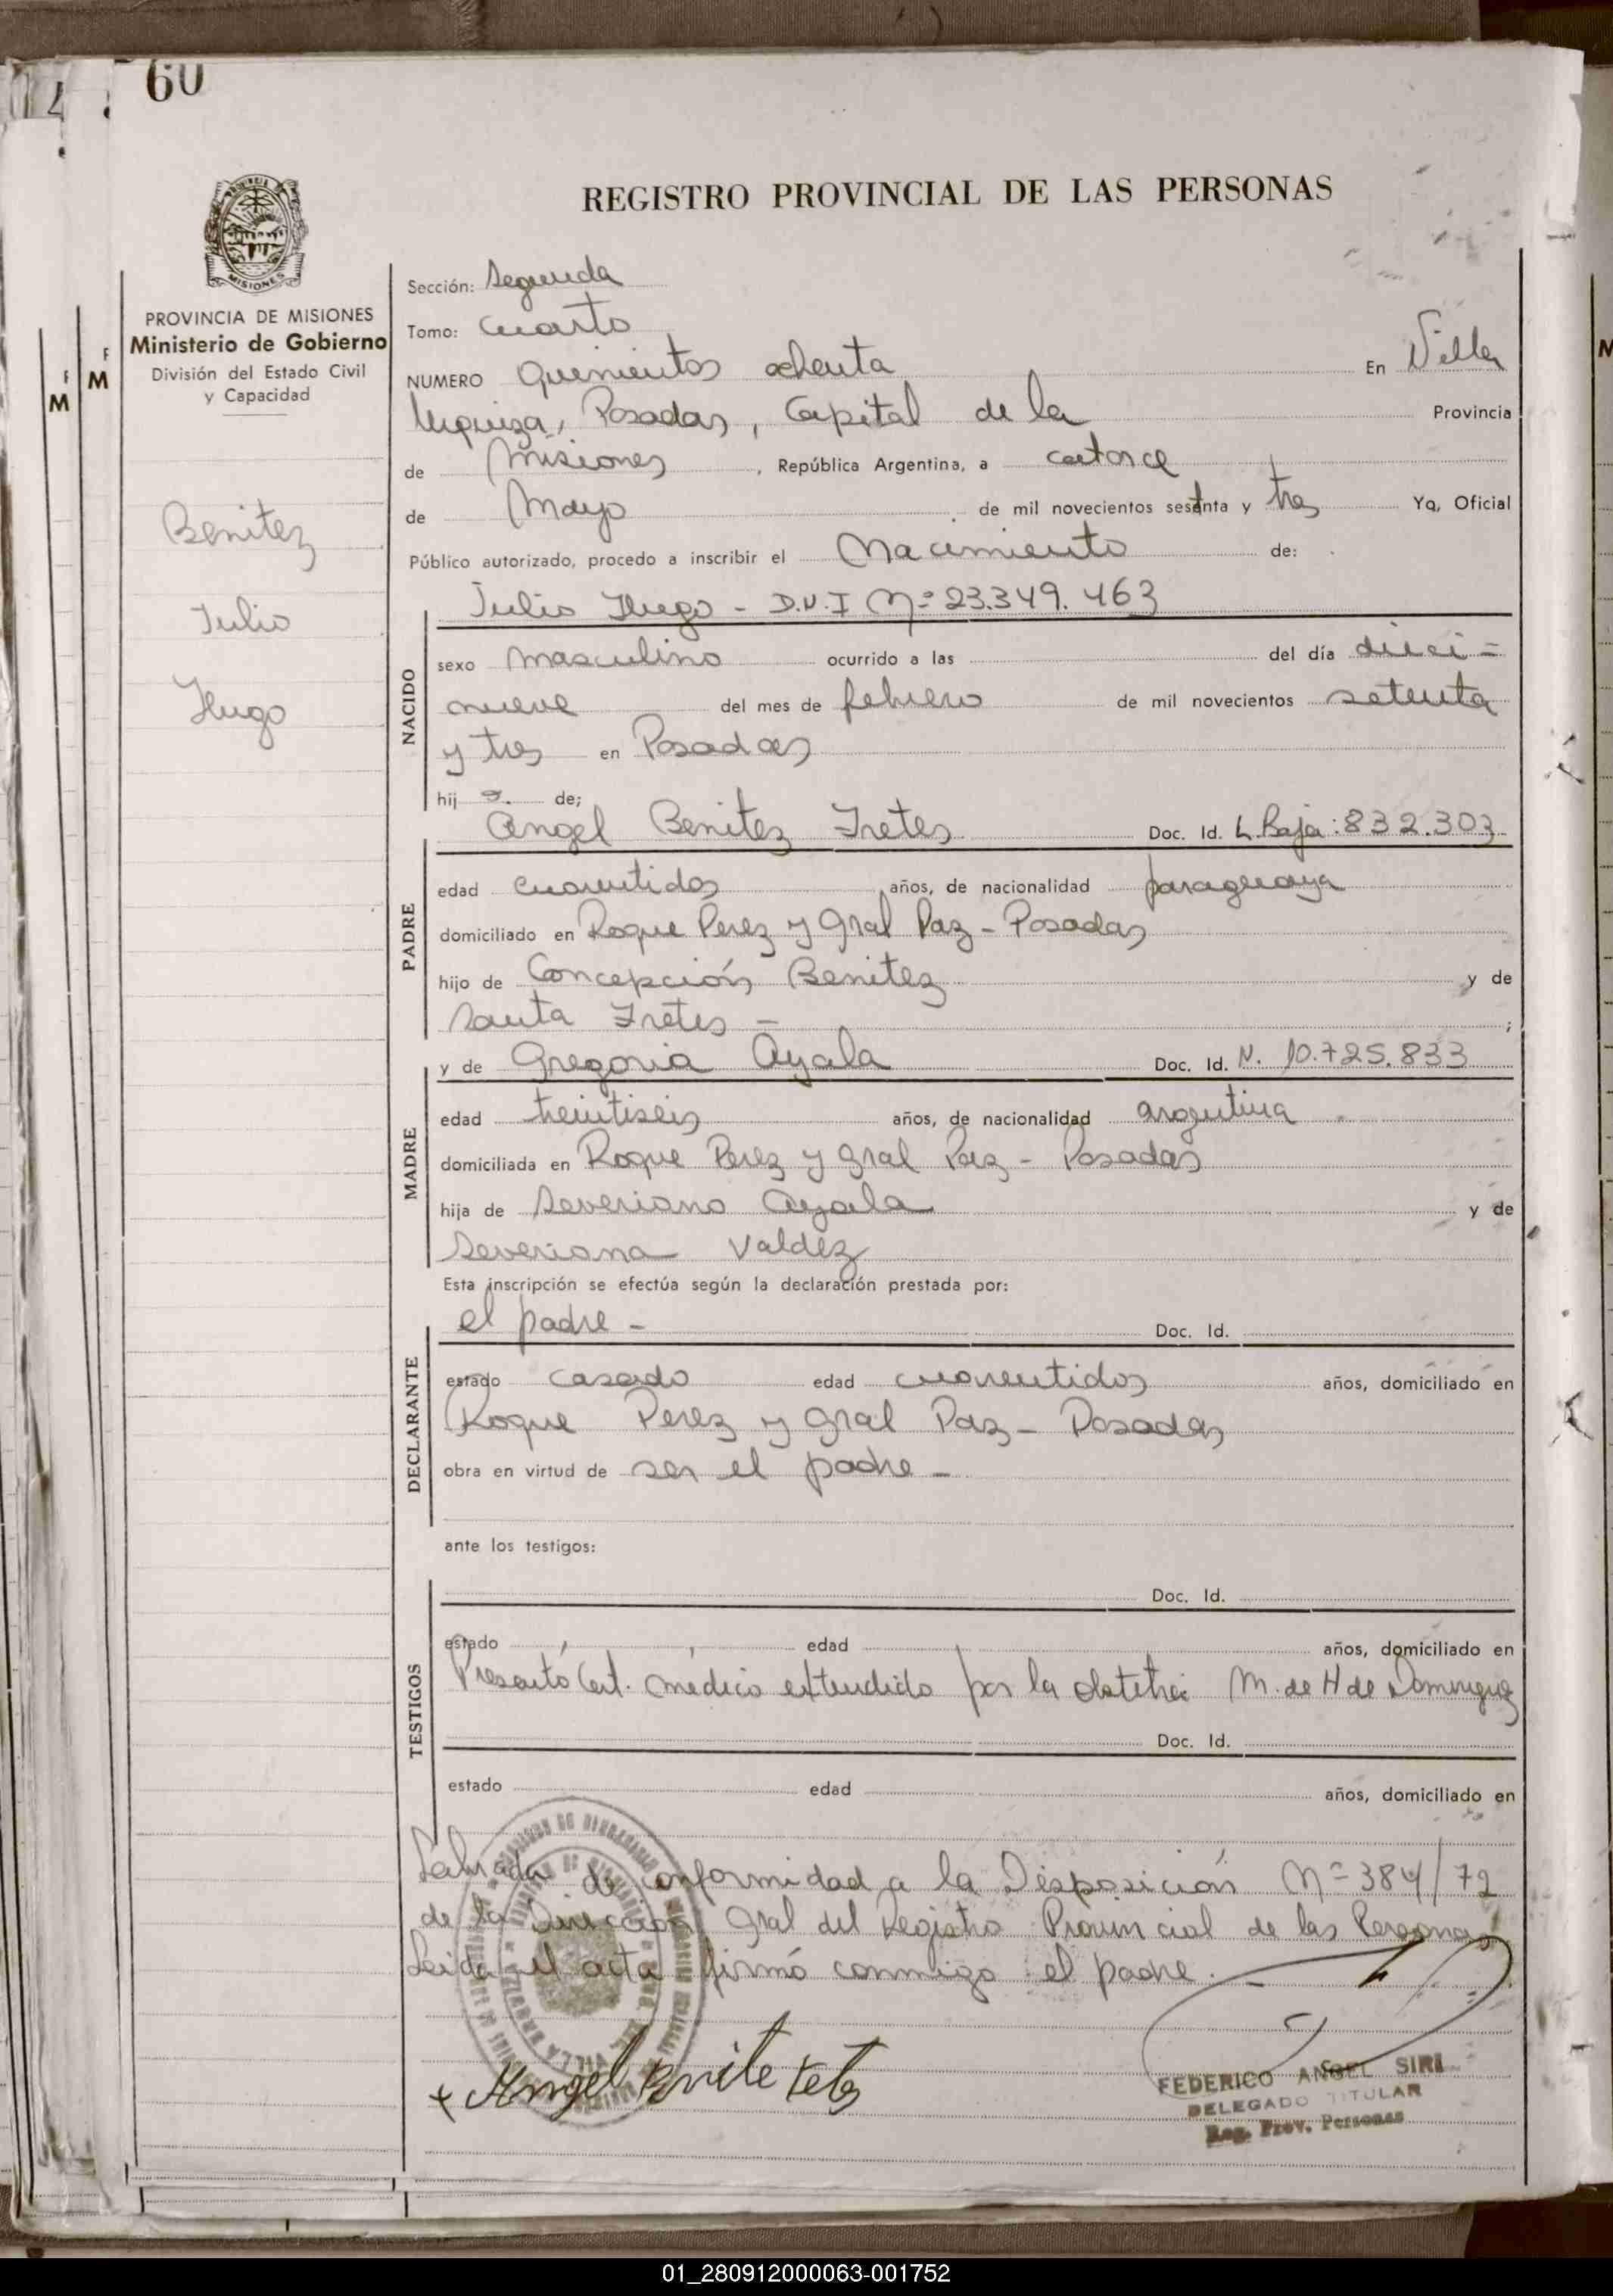 60
REGISTRO PROVINCIAL DE LAS PERSONAS
MISIONES
PROVINCIA DE MISIONES
Ministerio de Gobierno
División del Estado Civil
y Capacidad
Benitez
Julio
Hugo
Sección: Segunda
Tomo: Cuarto
NUMERO Quinientos ochenta En Villa
Urquiza, Posadas, Capital de la Provincia
de Misiones, República Argentina, a catorce
de Mayo de mil novecientos setenta y tres Yo, Oficial
Público autorizado, procedo a inscribir el Nacimiento de:
Julio Hugo - D.N.I Nº 23.349.463
NACIDO
sexo masculino ocurrido a las del día dieci=
nueve del mes de febrero de mil novecientos setenta
y tres en Posadas
hijo de;
Angel Benitez Fretes Doc. Id. L. Baja: 832.303
PADRE
edad cuarentidos años, de nacionalidad paraguaya
domiciliado en Roque Perez y Gral Paz - Posadas
hijo de Concepción Benitez y de
Santa Fretes - ;
y de Gregoria Ayala Doc. Id. N. 10.725.833
MADRE
edad treintiseis años, de nacionalidad argentina
domiciliada en Roque Perez y Gral Paz - Posadas
hija de Severiano Ayala y de
Severiana Valdez
Esta inscripción se efectúa según la declaración prestada por:
el padre - Doc. Id.
DECLARANTE
estado casado edad cuarentidos años, domiciliado en
Roque Perez y Gral Paz - Posadas
obra en virtud de ser el padre -
ante los testigos:
Doc. Id.
TESTIGOS
estado edad años, domiciliado en
Presentó Cert. médico extendido por la obstetra M. de H de Dominguez
Doc. Id.
estado edad años, domiciliado en
Labrada de conformidad a la Disposición Nº 384/72
de la Dirección Gral del Registro Provincial de las Personas
Leida el acta firmó conmigo el padre. -
Angel Benite
FEDERICO ANGEL SIRI
DELEGADO TITULAR
Reg. Prov. Personas
01_280912000063-001752